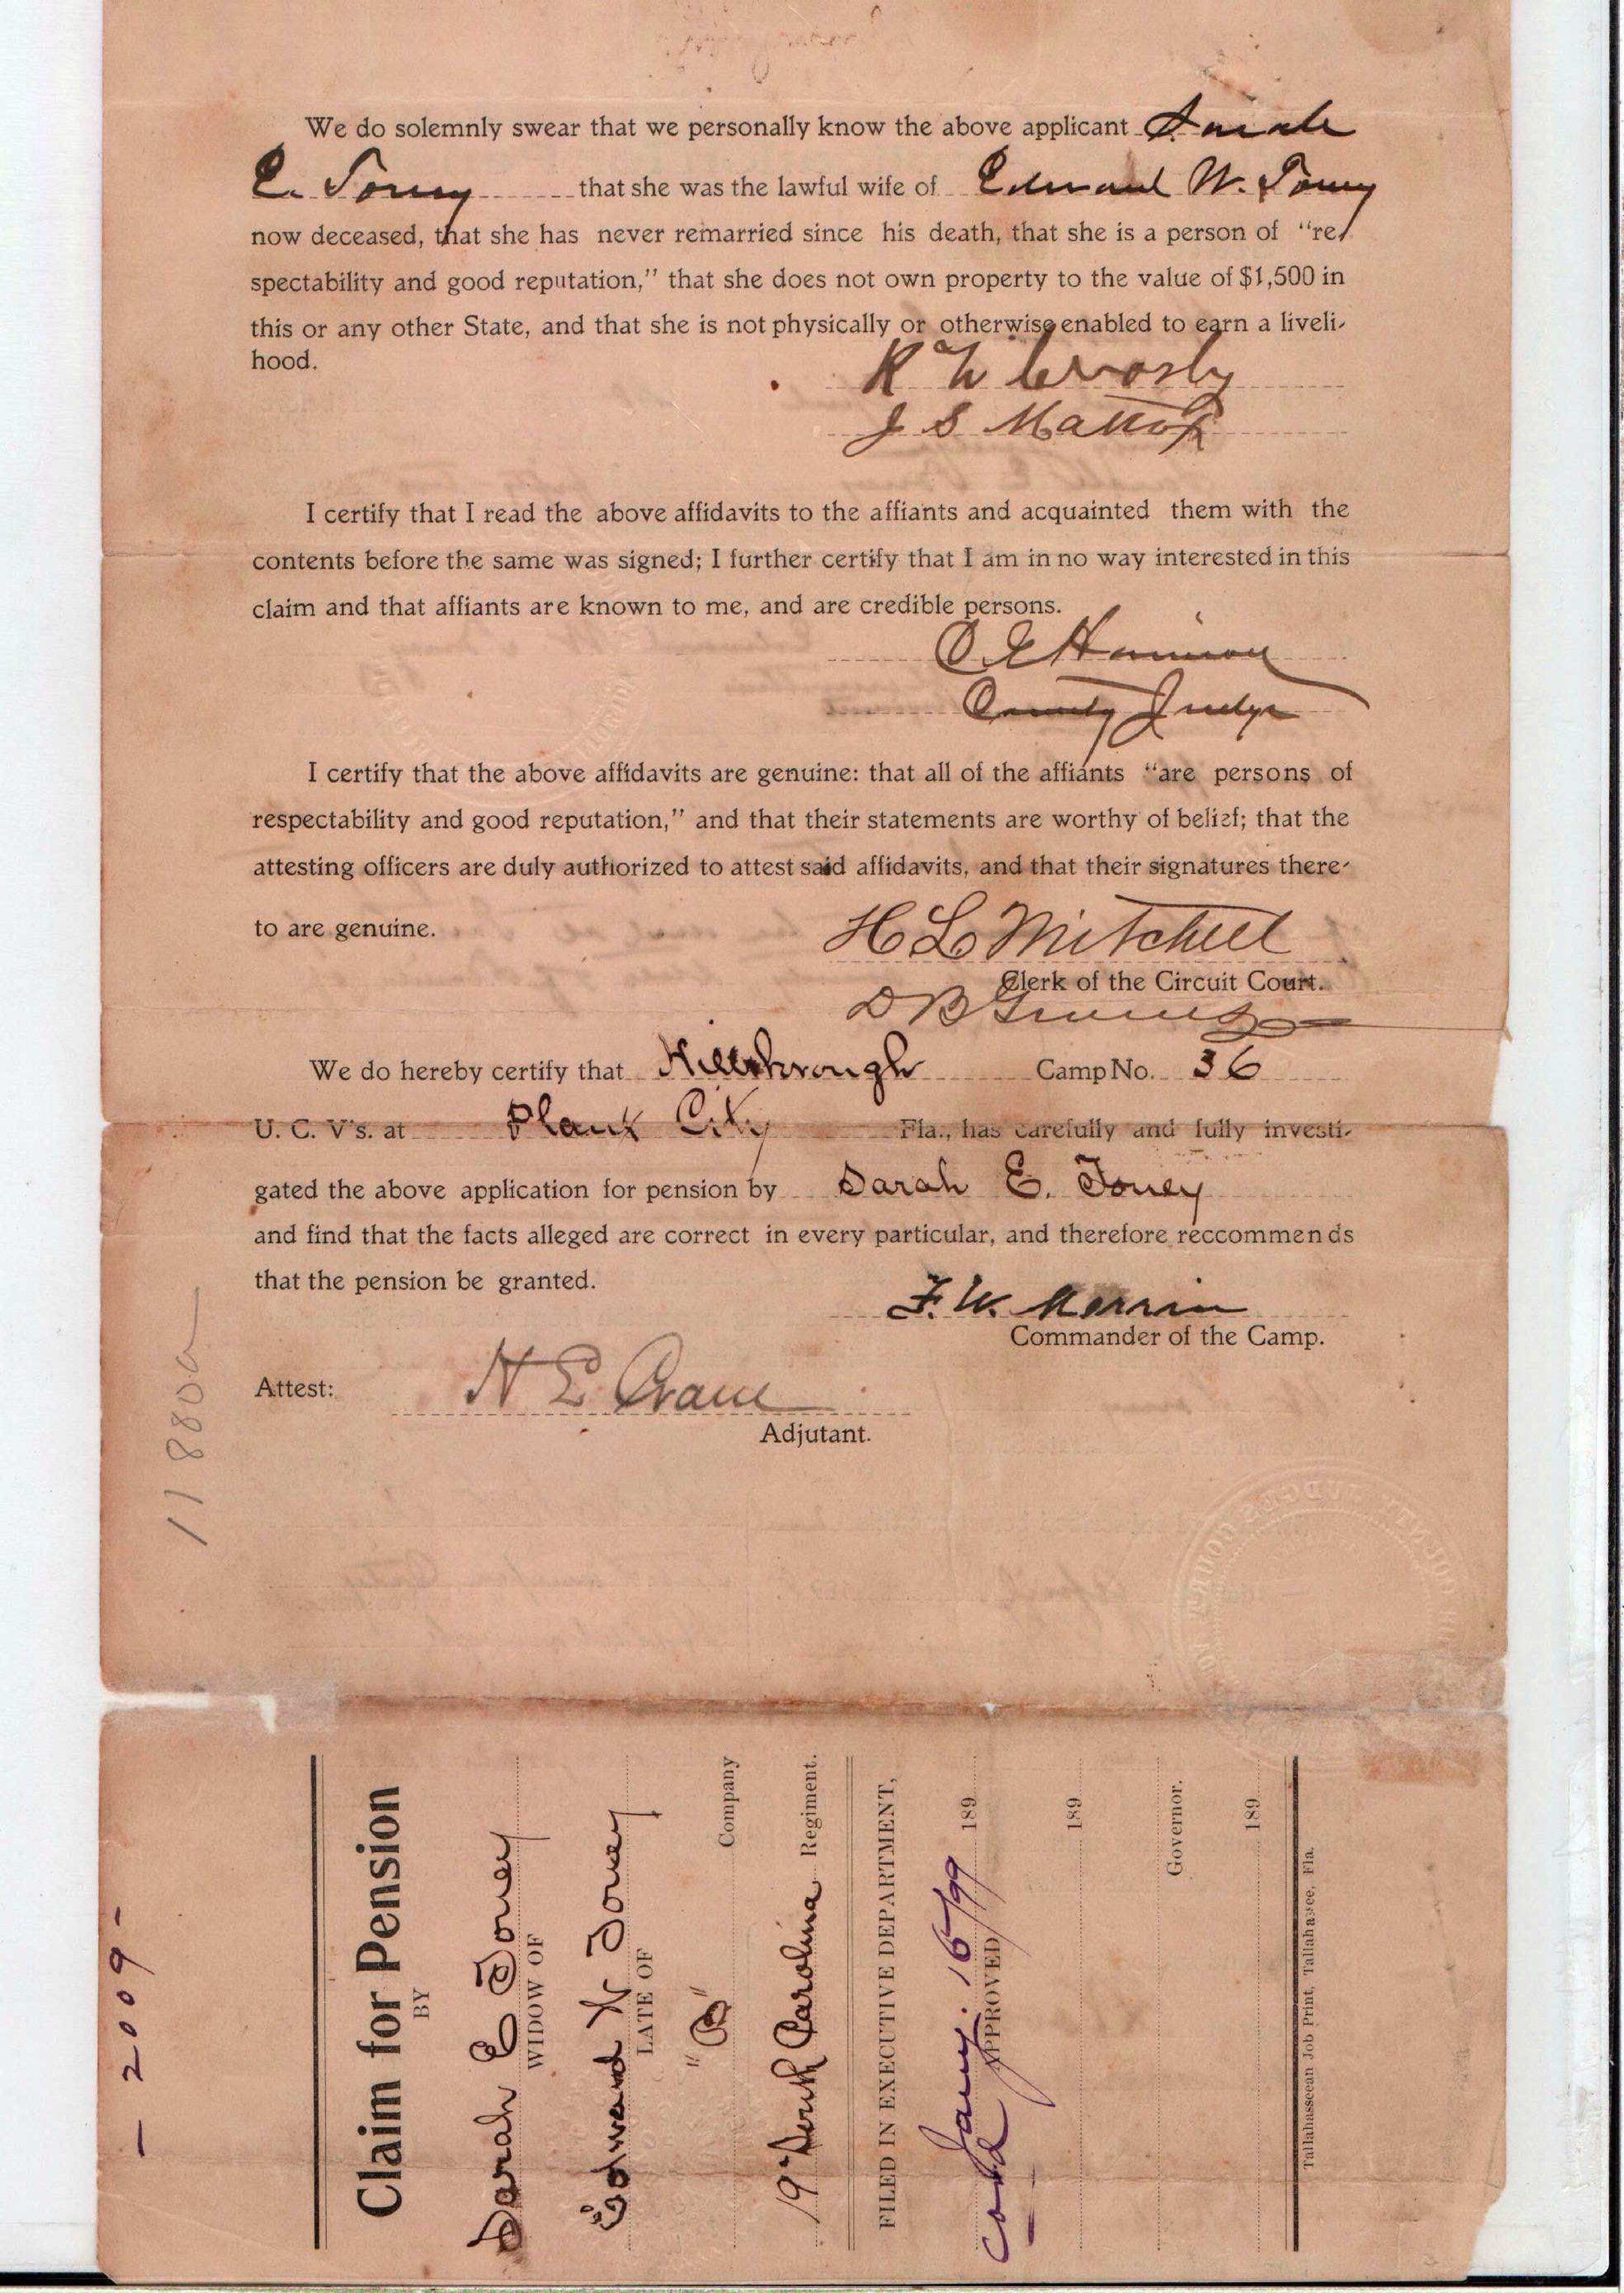 We do solemnly swear that we personally know the above applicant Sarah
E. Toney that she was the lawful wife of Edward W. Toney
now deceased, that she has never remarried since his death, that she is a person of “re-
spectability and good reputation,” that she does not own property to the value of $1,500 in
this or any other State, and that she is not physically or otherwise enabled to earn a liveli-
hood.
R W Crosby
J S Mattox
I certify that I read the above affidavits to the affiants and acquainted them with the
contents before the same was signed; I further certify that I am in no way interested in this
claim and that affiants are known to me, and are credible persons.
County Judge
I certify that the above affidavits are genuine: that all of the affiants “are persons of
respectability and good reputation,” and that their statements are worthy of belief; that the
attesting officers are duly authorized to attest said affidavits, and that their signatures there-
to are genuine.
H L Mitchell
Clerk of the Circuit Court.
D B
We do hereby certify that Hillsbrough Camp No. 36
U. C. V's. at Plant City Fla., has carefully and fully investi-
gated the above application for pension by Sarah E. Toney
and find that the facts alleged are correct in every particular, and therefore reccommends
that the pension be granted.
F. W. Merrin
Commander of the Camp.
Attest: H E Crane
Adjutant.
11880a
- 2009 -
Claim for Pension
BY
Sarah E Toney
WIDOW OF
Edward W Toney
LATE OF
"B" Company
19" South Carolina Regiment.
FILED IN EXECUTIVE DEPARTMENT,
Jany. 16/99 189
APPROVED
189
Governor.
189
Tallahasseean Job Print, Tallahassee, Fla.